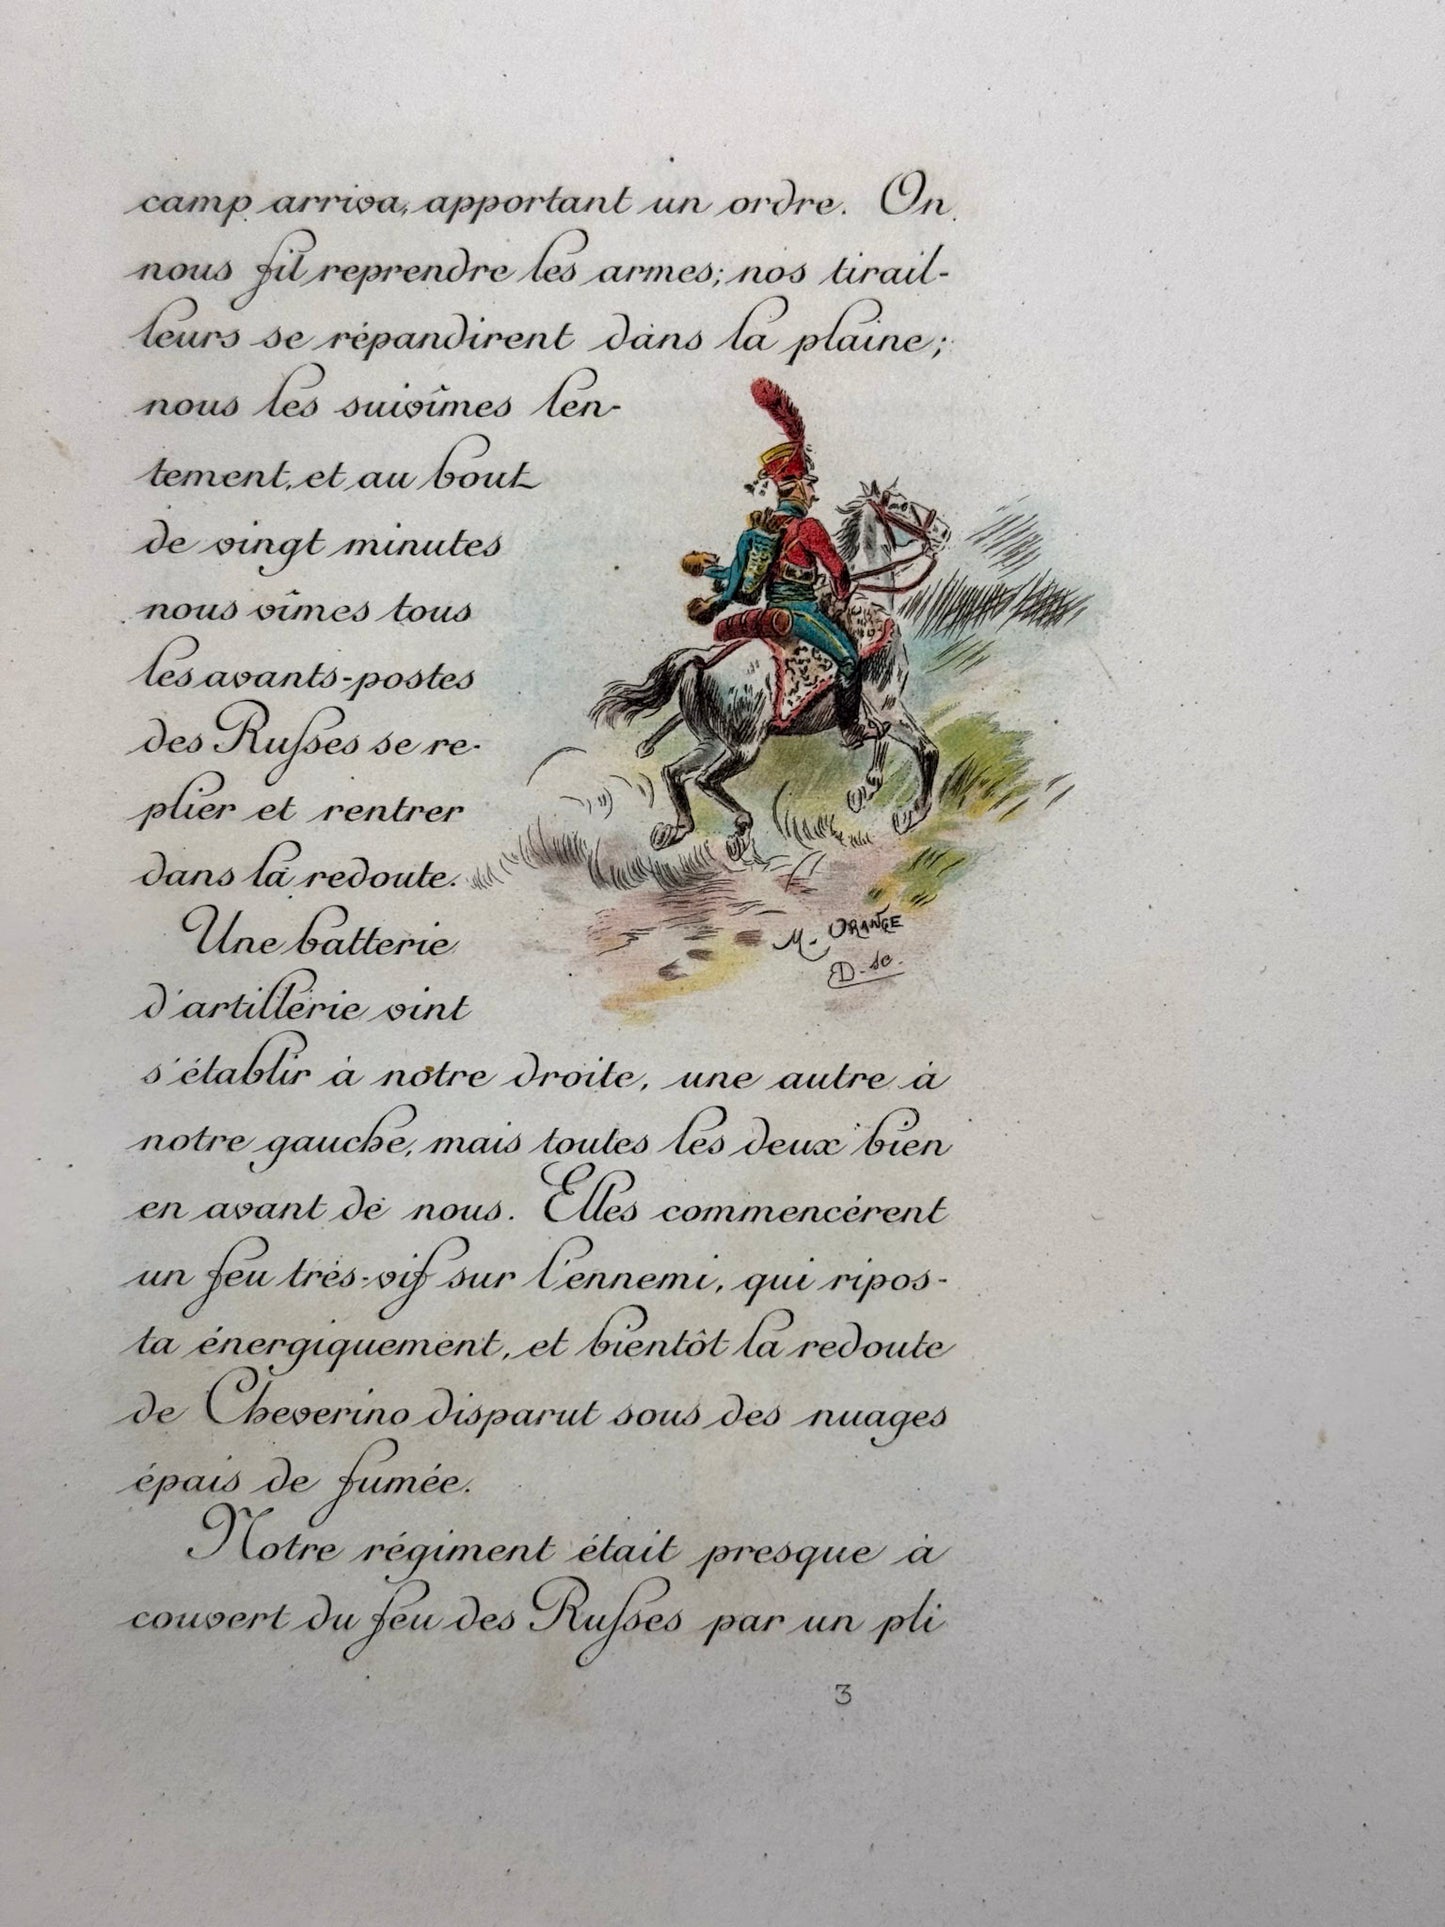 camp arriva, apportant un ordre. On
nous fit reprendre les armes; nos tirail-
leurs se répandirent dans la plaine;
nous les suivîmes len-
tement, et au bout
de vingt minutes
nous vîmes tous
les avants-postes
des Russes se re-
plier et rentrer
dans la redoute.
Une batterie
d'artillerie vint
s'établir à notre droite, une autre à
notre gauche, mais toutes les deux bien
en avant de nous. Elles commencérent
un feu trés-vif sur l'ennemi, qui ripos-
ta énergiquement, et bientôt la redoute
de Cheverino disparut sous des nuages
épais de fumée.
Notre régiment était presque à
couvert du feu des Russes par un pli
M. ORANGE
D. sc.
3